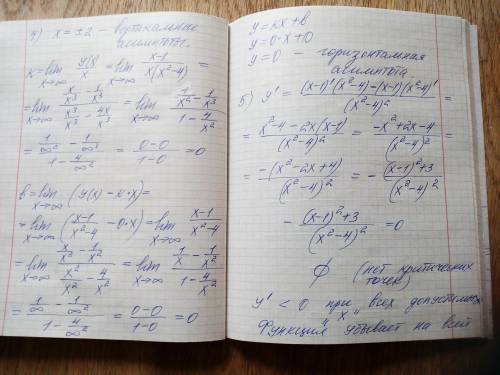 4) x = ±2 – вертикальные
асимптоты.
k = lim x→∞ y(x)/x = lim x→∞ (x-1)/(x(x²-4)) =
= lim x→∞ (x/x³ - 1/x³)/(x³/x³ - 4x/x³) = lim x→∞ (1/x² - 1/x³)/(1 - 4/x²)
= (1/∞² - 1/∞³)/(1 - 4/∞²) = (0-0)/(1-0) = 0
b = lim x→∞ (y(x) - k·x) =
= lim x→∞ (x-1/x²-4 - 0·x) = lim x→∞ (x-1)/(x²-4)
= lim x→∞ (x/x² - 1/x²)/(x²/x² - 4/x²) = lim x→∞ (1/x - 1/x²)/(1 - 4/x²)
= (1/∞ - 1/∞²)/(1 - 4/∞²) = (0-0)/(1-0) = 0
y = kx + b
y = 0·x + 0
y = 0 – горизонтальная
асимптота.
5) y' = ((x-1)'(x²-4) - (x-1)(x²-4)')/(x²-4)² =
= (x²-4-2x(x-1))/(x²-4)² = (-x²+2x-4)/(x²-4)² =
= -(x²-2x+4)/(x²-4)² = - ((x-1)²+3)/(x²-4)²
- ((x-1)²+3)/(x²-4)² = 0
∅ (нет критических
точек)
y' < 0 при всех допустимых
"x"
Функция убывает на всей